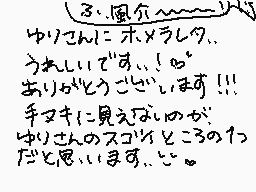 ふ、風介〜〜〜
ゆりさんに ホメラレタ、、
うれしいです、、!
ありがとうございます!!!
手ヌキに見えないのが、
ゆりさんのスゴイところの1つ
だと思います、、